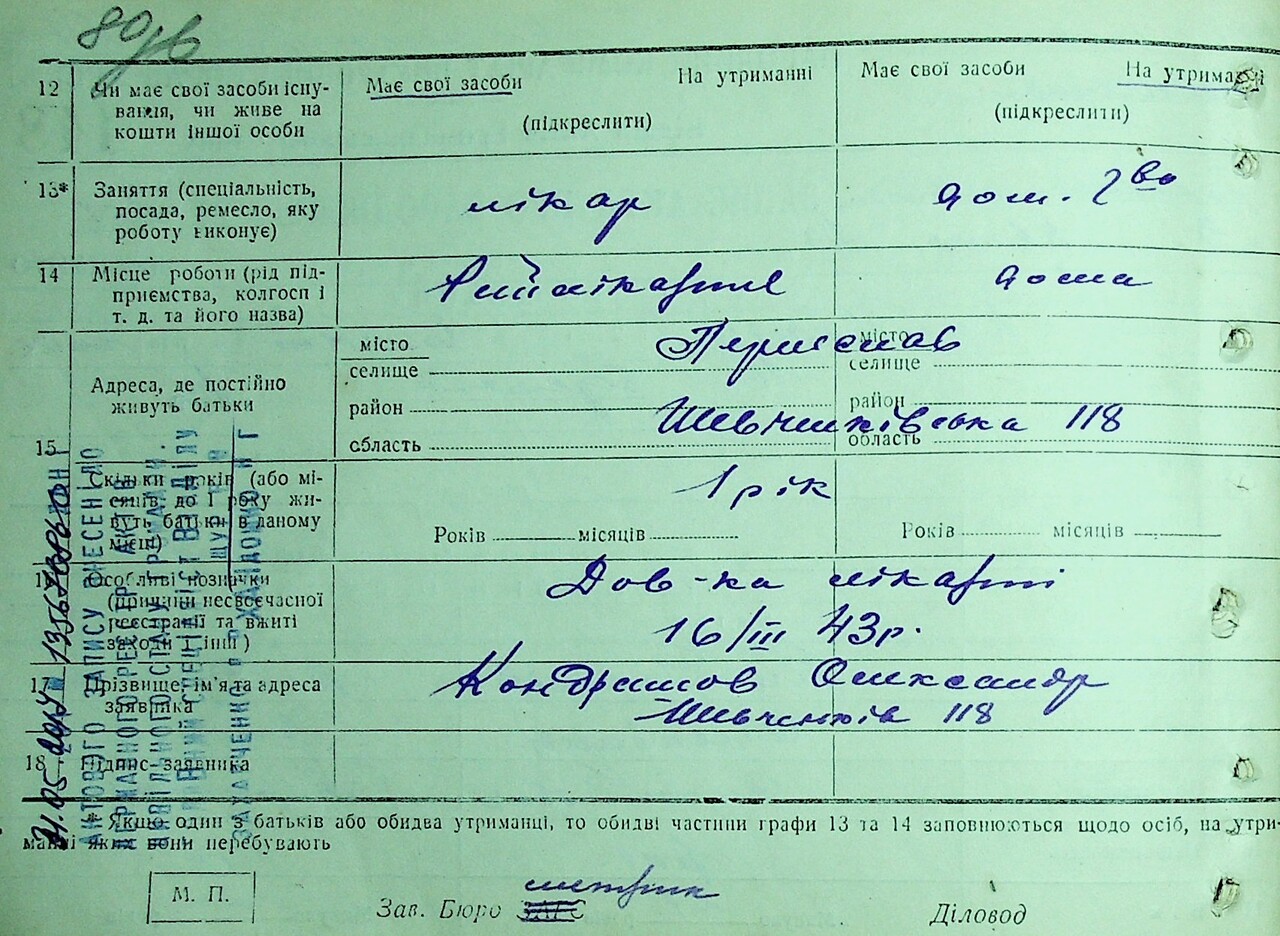 12 Чи має свої засоби існу-
вання, чи живе на
кошти іншої особи
Має свої засоби На утриманні
(підкреслити)
Має свої засоби На утриманні
(підкреслити)
13* Заняття (спеціальність,
посада, ремесло, яку
роботу виконує)
лікар
дом. г-во
14 Місце роботи (рід під-
приємства, колгосп і
т. д. та його назва)
Райлікарня
дома
15
Адреса, де постійно
живуть батьки
місто
селище
район
область
місто
селище
район
область
Переяслав
Шевченківська 118
Скільки років (або мі-
сяців до 1 року жи-
вуть батьки в даному
місці)
1 рік
Років місяців
Років місяців
Особливі позначки
(причини несвоєчасної
реєстрації та вжиті
заходи і інш)
Дов-ка лікарні
16/III 43р.
17 Прізвище, ім'я та адреса
заявника
Кондрашов Олександр
Шевченків 118
18 Підпис заявника
* Якщо один з батьків або обидва утриманці, то обидві частини графи 13 та 14 заповнюються щодо осіб, на утри-
манні яких вони перебувають
М. П.
Зав. Бюро ЗАГС
метрик
Діловод
АКТОВОГО ЗАПИСУ ВНЕСЕНІ ДО
ДЕРЖАВНОГО РЕЄСТРУ АКТІВ
ЦИВІЛЬНОГО СТАНУ ГРОМАДЯН.